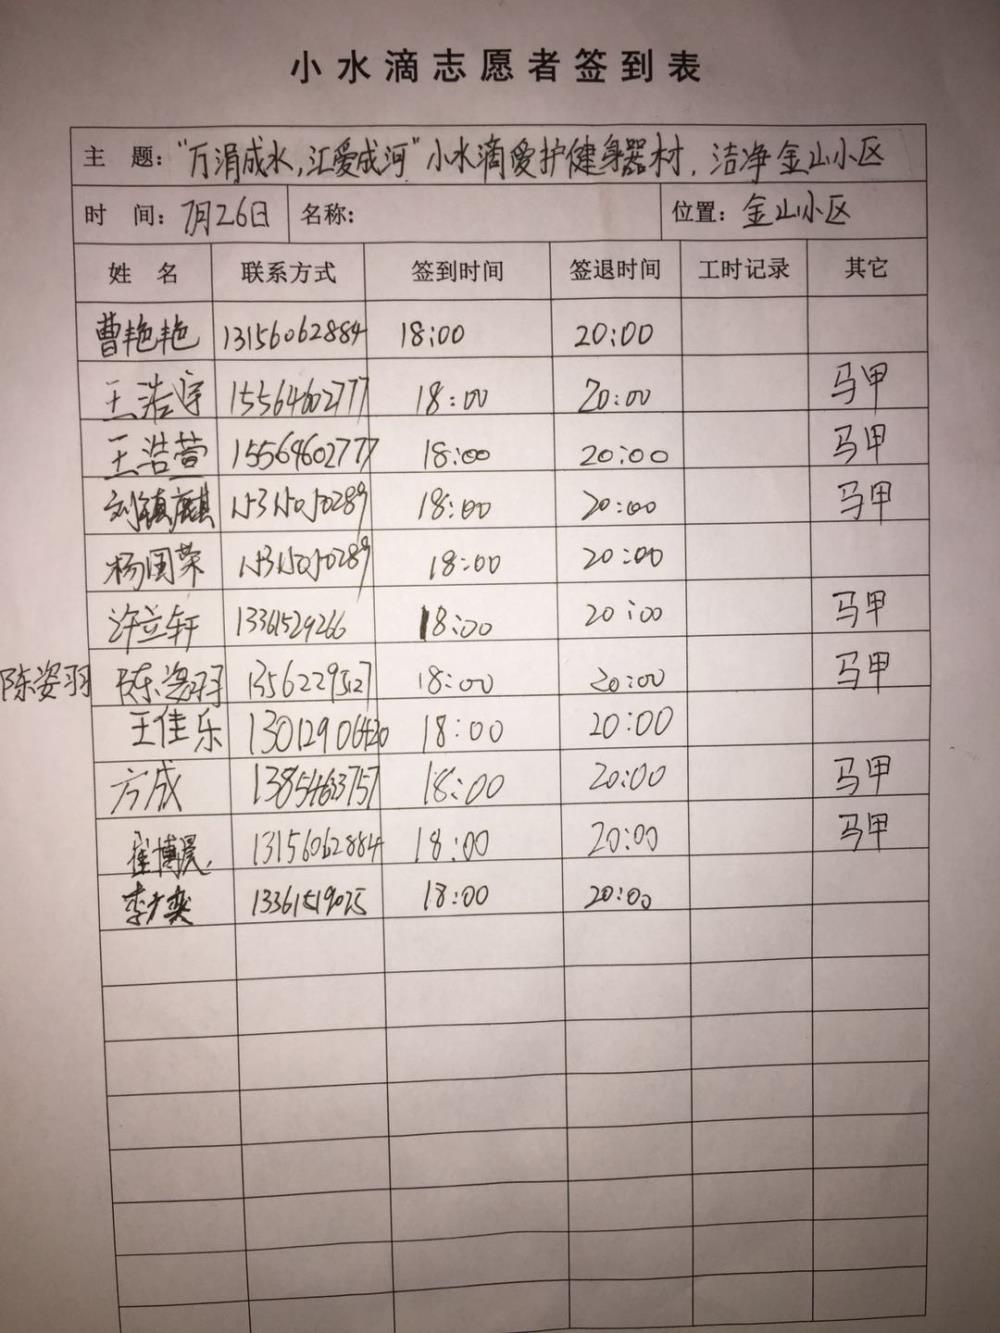 小水滴志愿者签到表
主 题：“万涓成水，汇爱成河”小水滴爱护健身器材，洁净金山小区
时 间：7月26日 名称： 位置：金山小区
姓 名 联系方式 签到时间 签退时间 工时记录 其它
曹艳艳 13156062884 18:00 20:00
王浩宇 15564602777 18:00 20:00 马甲
王浩萱 15564602777 18:00 20:00 马甲
刘镇麒 15315050289 18:00 20:00 马甲
杨国荣 15315050289 18:00 20:00
许立轩 13361529266 18:00 20:00 马甲
陈姿羽 陈姿羽 13562295127 18:00 20:00 马甲
王佳乐 13012906420 18:00 20:00
方成 18:00 20:00 马甲
崔博晨 13156062884 18:00 20:00 马甲
李奕 13361519025 18:00 20:00